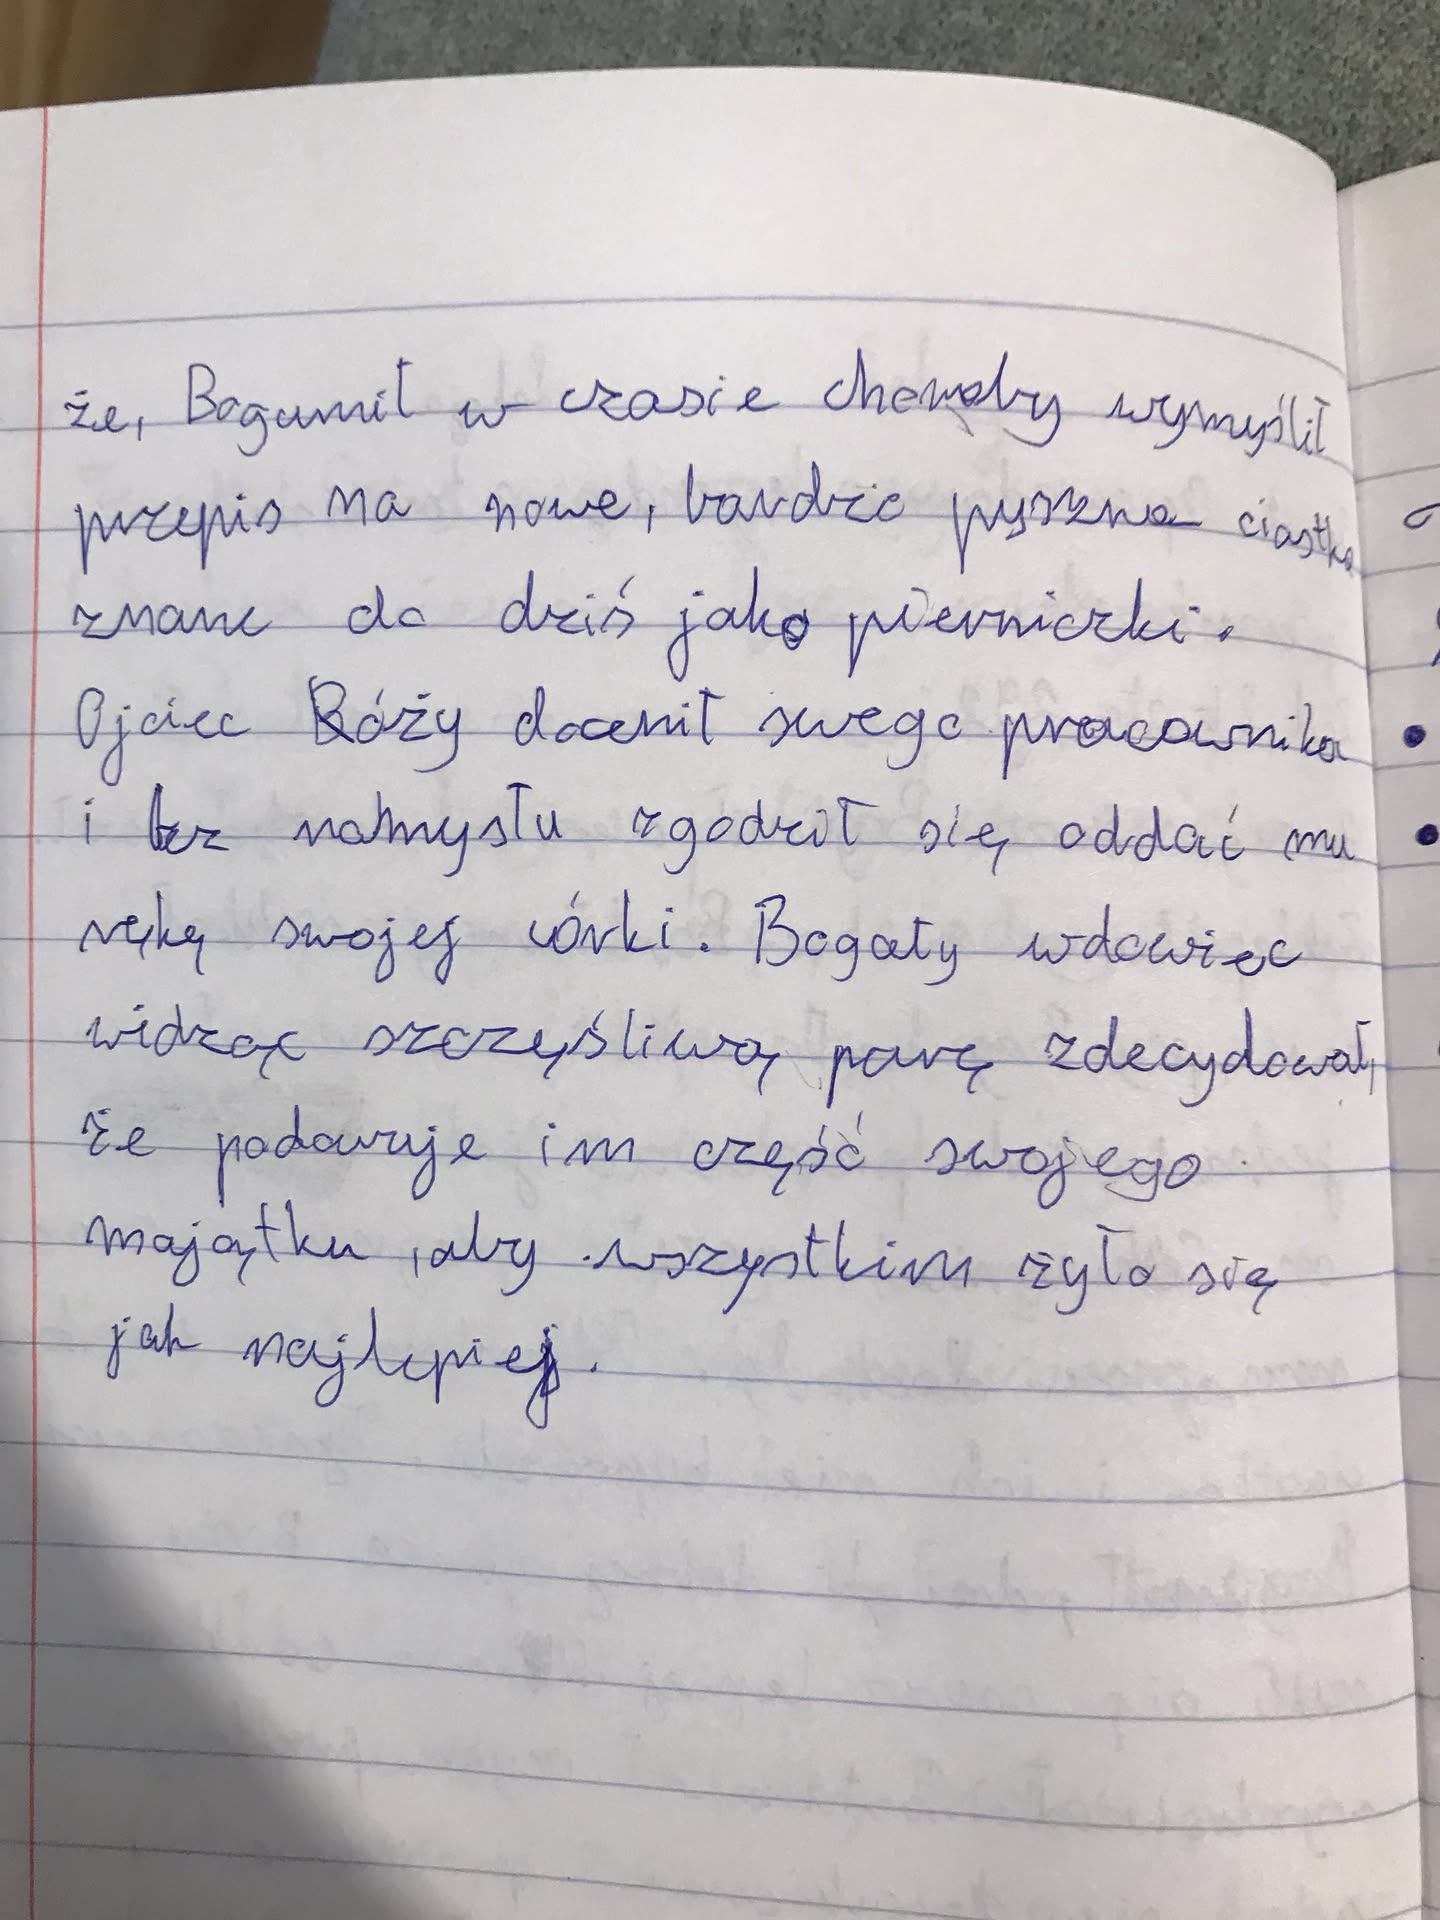 że, Bogumił w czasie choroby wymyślił
przepis na nowe, bardzo pyszne ciastka
znane do dziś jako pierniczki.
Ojciec Róży docenił swego pracownika
i bez namysłu zgodził się oddać mu
rękę swojej córki. Bogaty wdowiec
widząc szczęśliwą parę zdecydował,
że podaruje im część swojego
majątku, aby wszystkim żyło się
jak najlepiej.